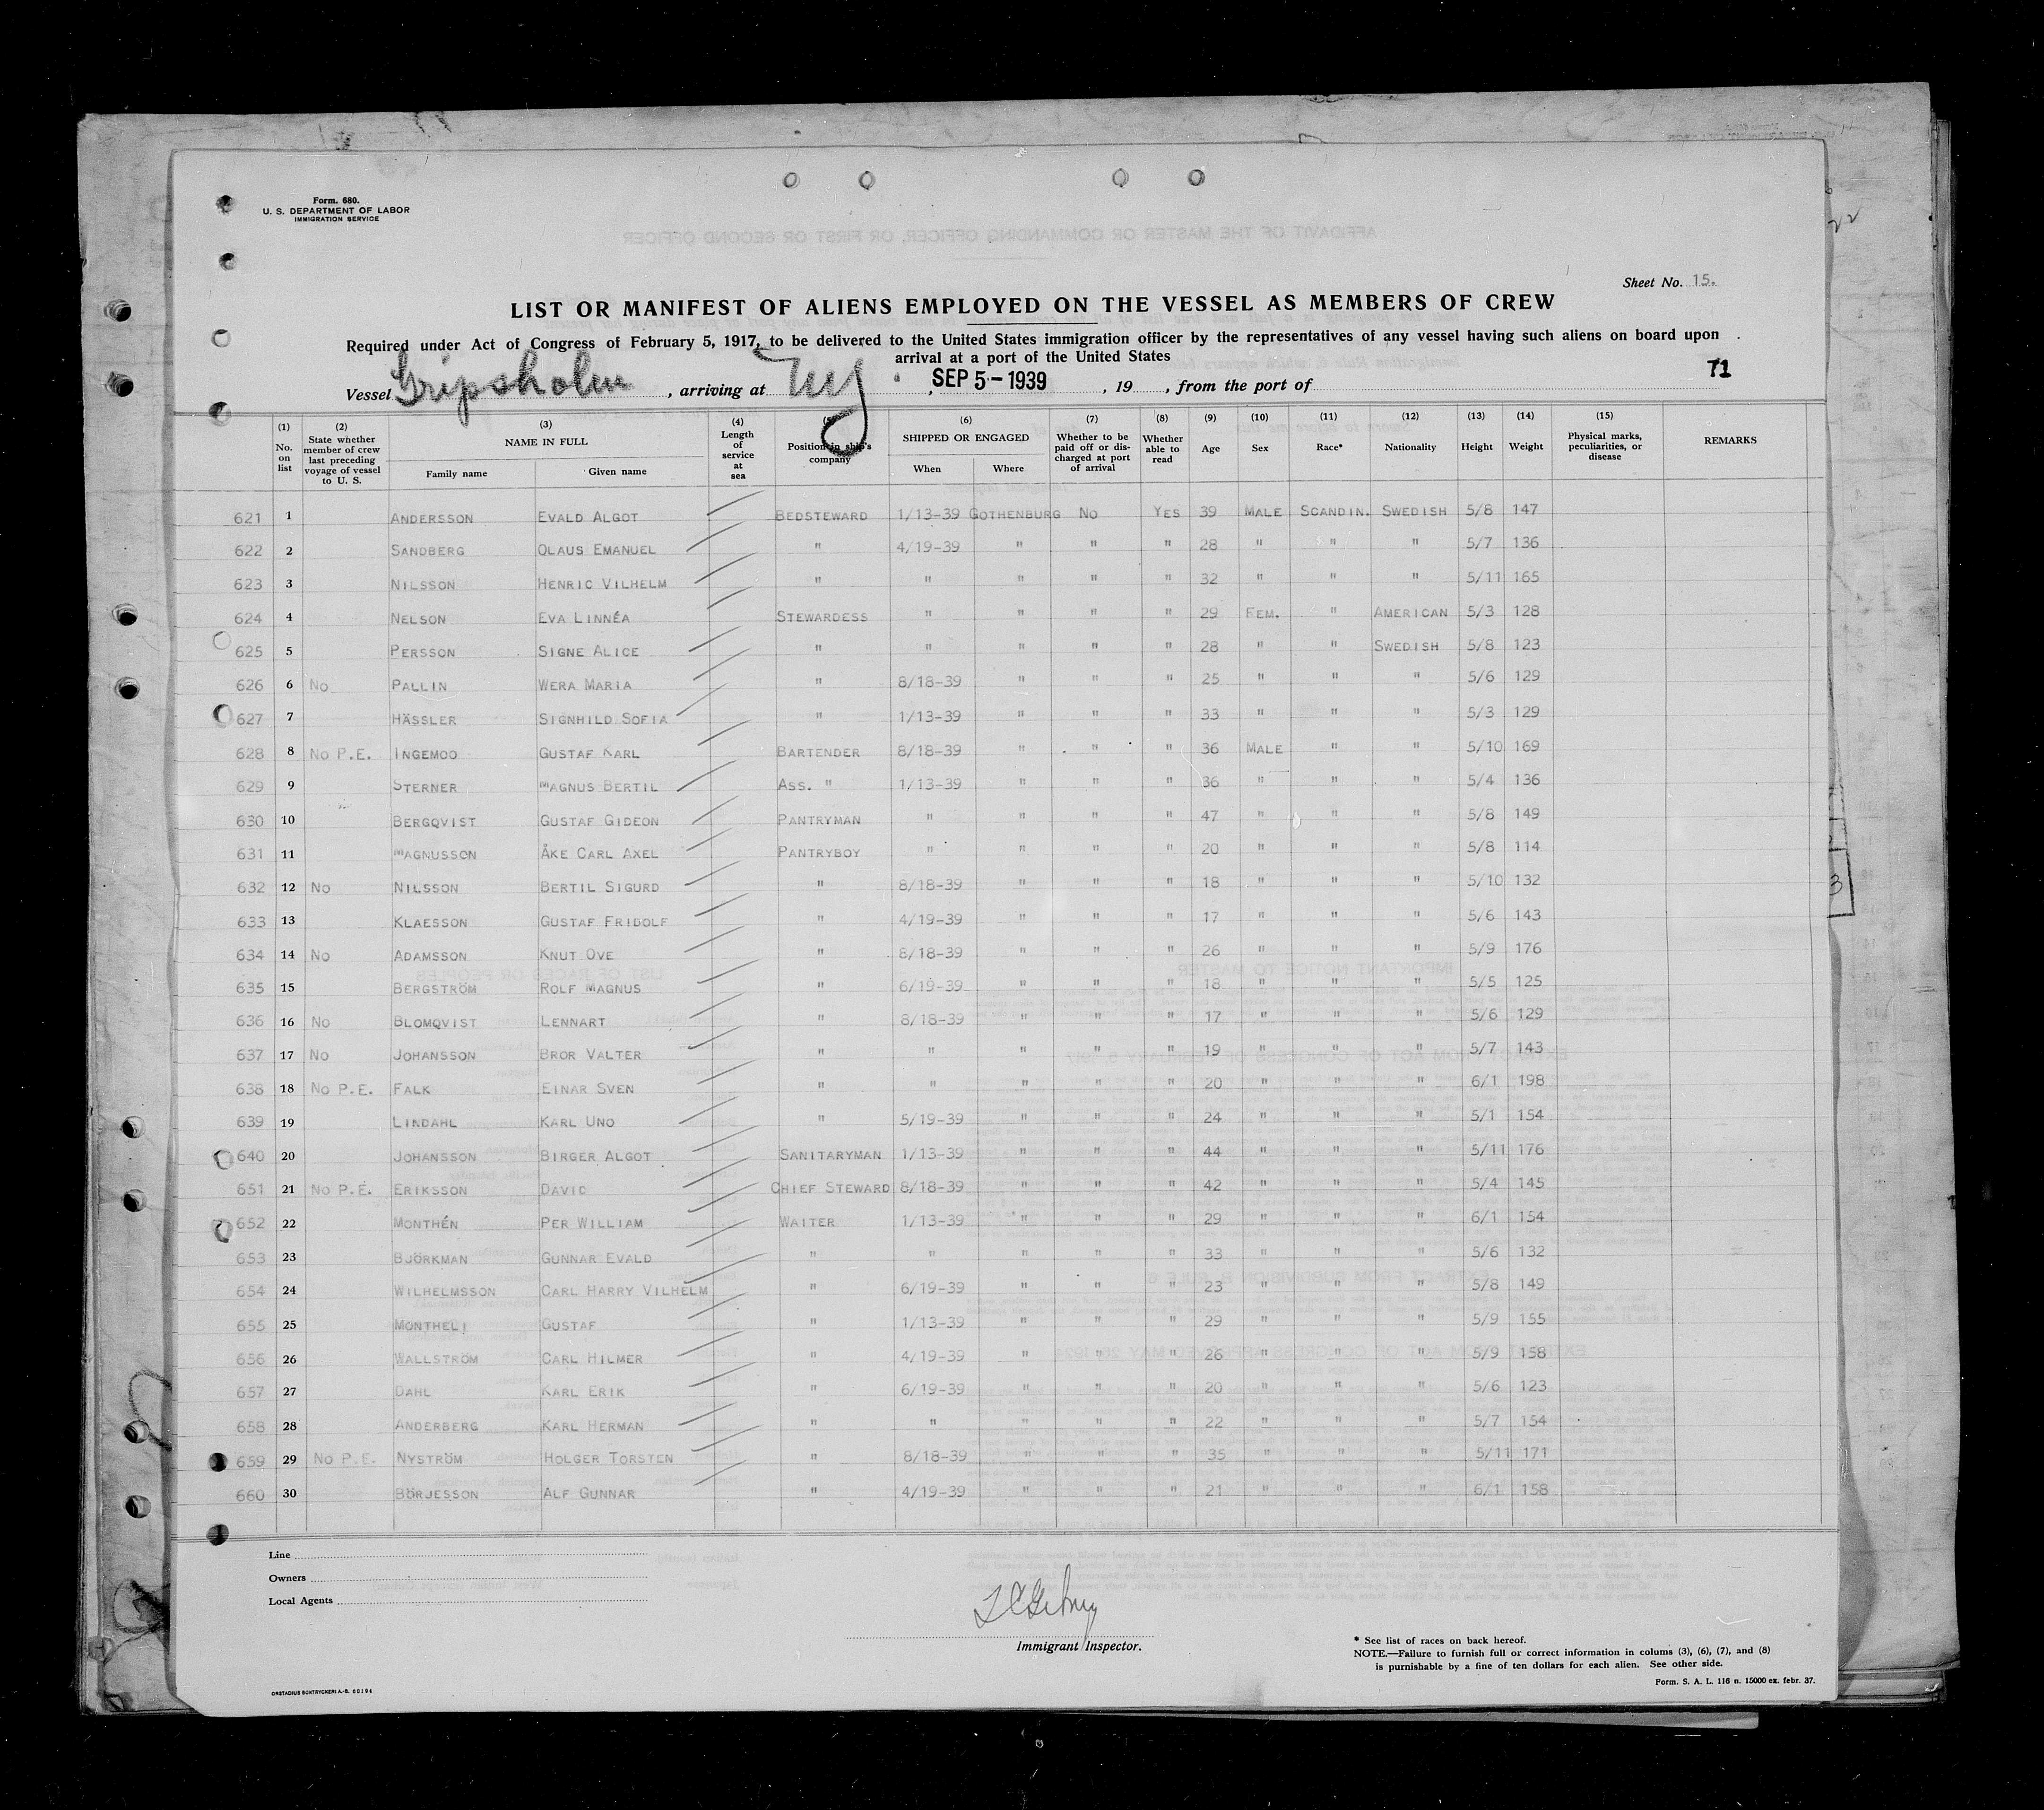 Form. 680.
U. S. DEPARTMENT OF LABOR
IMMIGRATION SERVICE
Sheet No. 15.
LIST OR MANIFEST OF ALIENS EMPLOYED ON THE VESSEL AS MEMBERS OF CREW
Required under Act of Congress of February 5, 1917, to be delivered to the United States immigration officer by the representatives of any vessel having such aliens on board upon
arrival at a port of the United States
71
Vessel Gripsholm, arriving at Ny, SEP 5 - 1939, 19, from the port of
(1) No. on list (2) State whether member of crew last preceding voyage of vessel to U. S. (3) NAME IN FULL Family name Given name (4) Length of service at sea (5) Position in ship's company (6) SHIPPED OR ENGAGED When Where (7) Whether to be paid off or discharged at port of arrival (8) Whether able to read (9) Age (10) Sex (11) Race* (12) Nationality (13) Height (14) Weight (15) Physical marks, peculiarities, or disease REMARKS
621 1 ANDERSSON EVALD ALGOT BEDSTEWARD 1/13-39 GOTHENBURG NO YES 39 MALE SCANDIN. SWEDISH 5/8 147
622 2 SANDBERG OLAUS EMANUEL " 4/19-39 " " " 28 " " " 5/7 136
623 3 NILSSON HENRIC VILHELM " " " " " 32 " " " 5/11 165
624 4 NELSON EVA LINNÉA STEWARDESS " " " " 29 FEM. " AMERICAN 5/3 128
625 5 PERSSON SIGNE ALICE " " " " " 28 " " SWEDISH 5/8 123
626 6 NO PALLIN WERA MARIA " 8/18-39 " " " 25 " " " 5/6 129
627 7 HÄSSLER SIGNHILD SOFIA " 1/13-39 " " " 33 " " " 5/3 129
628 8 NO P.E. INGEMOO GUSTAF KARL BARTENDER 8/18-39 " " " 36 MALE " " 5/10 169
629 9 STERNER MAGNUS BERTIL ASS. " 1/13-39 " " " 36 " " " 5/4 136
630 10 BERGQVIST GUSTAF GIDEON PANTRYMAN " " " " 47 " " " 5/8 149
631 11 MAGNUSSON ÅKE CARL AXEL PANTRYBOY " " " " 20 " " " 5/8 114
632 12 NO NILSSON BERTIL SIGURD " 8/18-39 " " " 18 " " " 5/10 132
633 13 KLAESSON GUSTAF FRIDOLF " 4/19-39 " " " 17 " " " 5/6 143
634 14 NO ADAMSSON KNUT OVE " 8/18-39 " " " 26 " " " 5/9 176
635 15 BERGSTRÖM ROLF MAGNUS " 6/19-39 " " " 18 " " " 5/5 125
636 16 NO BLOMQVIST LENNART " 8/18-39 " " " 17 " " " 5/6 129
637 17 NO JOHANSSON BROR VALTER " " " " " 19 " " " 5/7 143
638 18 NO P.E. FALK EINAR SVEN " " " " " 20 " " " 6/1 198
639 19 LINDAHL KARL UNO " 5/19-39 " " " 24 " " " 5/1 154
640 20 JOHANSSON BIRGER ALGOT SANITARYMAN 1/13-39 " " " 44 " " " 5/11 176
651 21 NO P.E. ERIKSSON DAVID CHIEF STEWARD 8/18-39 " " " 42 " " " 5/4 145
652 22 MONTHÉN PER WILLIAM WAITER 1/13-39 " " " 29 " " " 6/1 154
653 23 BJÖRKMAN GUNNAR EVALD " " " " " 33 " " " 5/6 132
654 24 WILHELMSSON CARL HARRY VILHELM " 6/19-39 " " " 23 " " " 5/8 149
655 25 MONTHELI GUSTAF " 1/13-39 " " " 29 " " " 5/9 155
656 26 WALLSTRÖM CARL HILMER " 4/19-39 " " " 26 " " " 5/9 158
657 27 DAHL KARL ERIK " 6/19-39 " " " 20 " " " 5/6 123
658 28 ANDERBERG KARL HERMAN " " " " " 22 " " " 5/7 154
659 29 NO P.E. NYSTRÖM HOLGER TORSTEN " 8/18-39 " " " 35 " " " 5/11 171
660 30 BÖRJESSON ALF GUNNAR " 4/19-39 " " " 21 " " " 6/1 158
Line
Owners
Local Agents
Immigrant Inspector.
* See list of races on back hereof.
NOTE.—Failure to furnish full or correct information in colums (3), (6), (7), and (8)
is purnishable by a fine of ten dollars for each alien. See other side.
Form. S. A. L. 116 n. 15000 ex. febr. 37.
ORSTADIUS BOKTRYCKERI A.-B. 66194